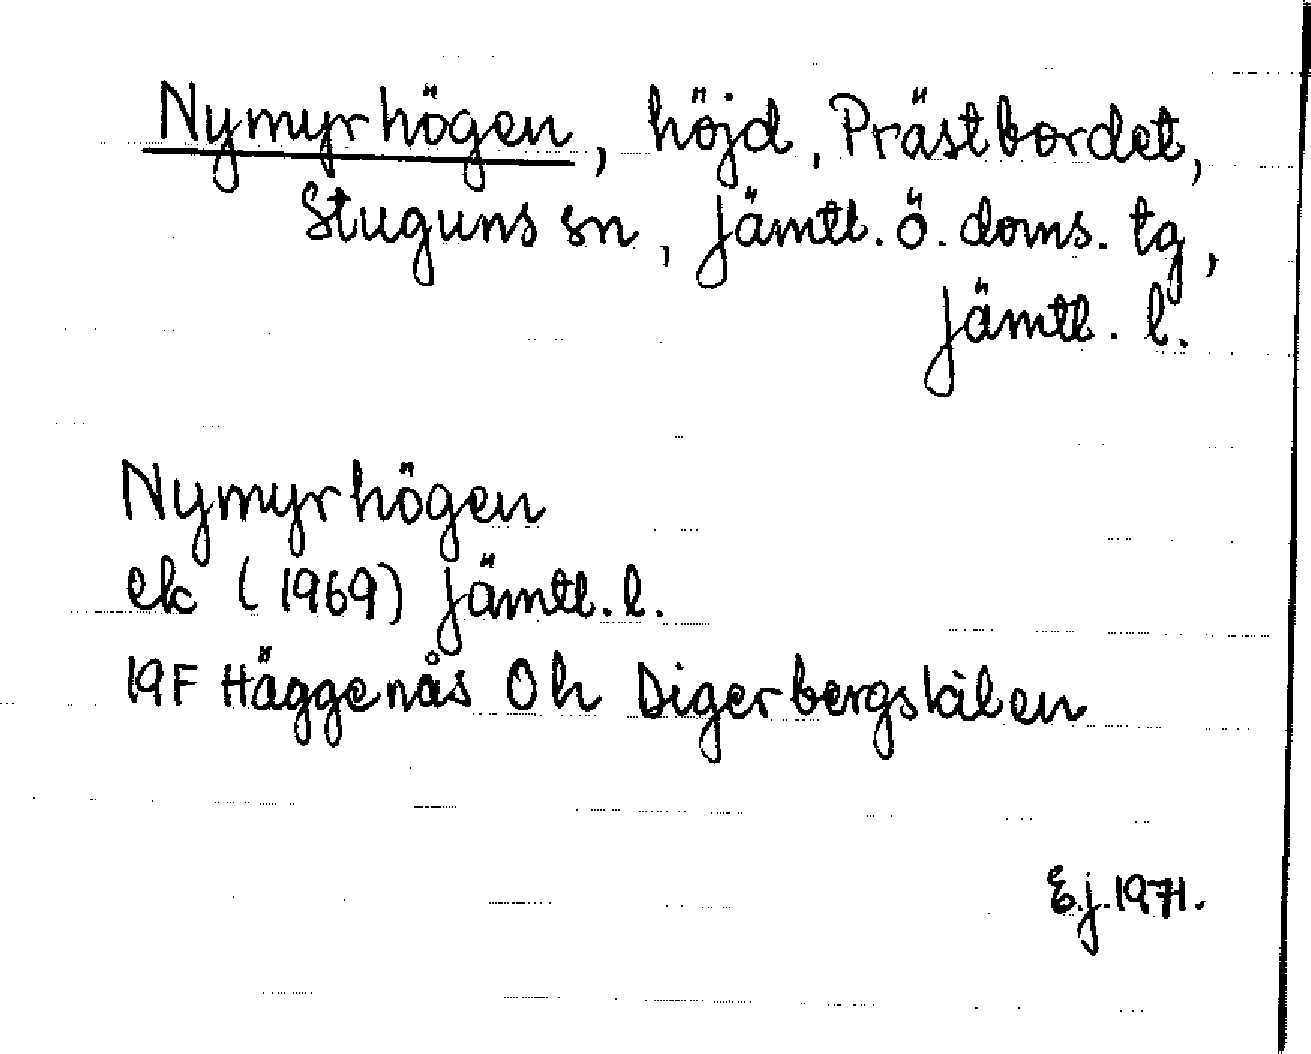 Nymyrhögen, höjd, Prästbordet,
Stuguns sn, Jämtl. ö. doms. tg,
Jämtl. l.
Nymyrhögen
ek (1969) Jämtl. l.
19F Häggenås 0h Digerbergskälen
E.J. 1971.